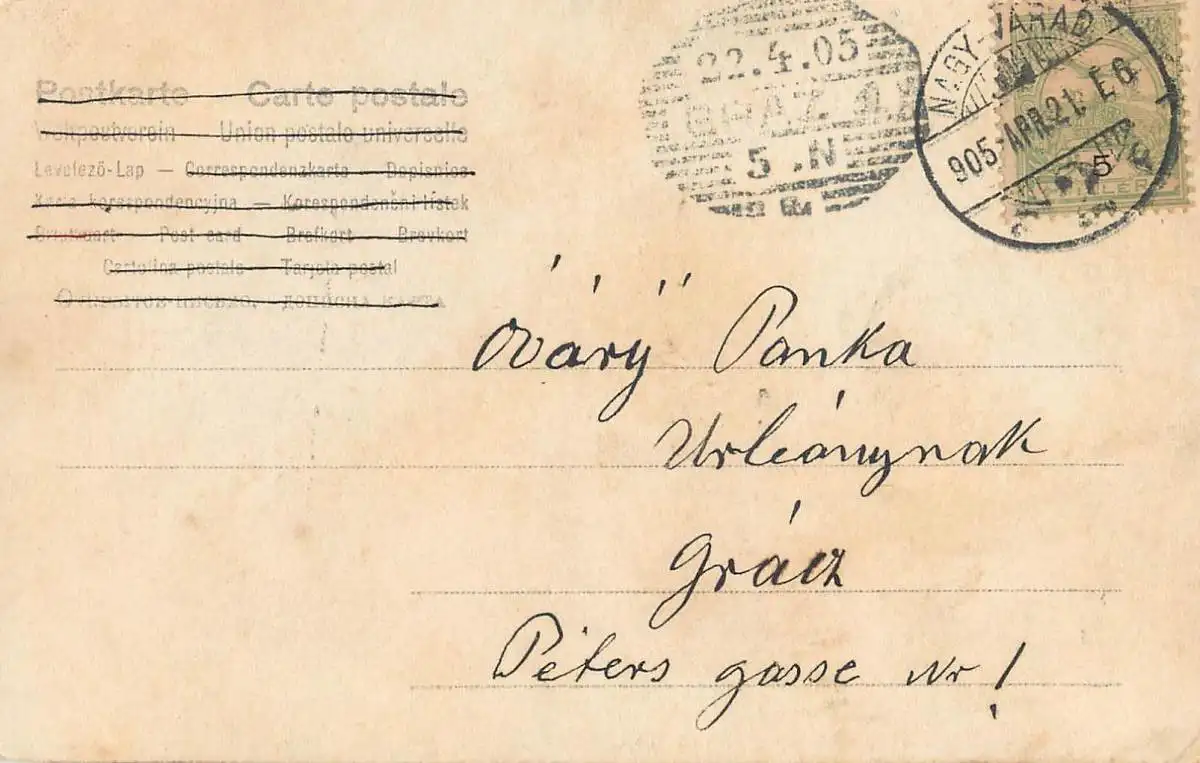 Postkarte Carte postale
Weltpostverein Union postale universelle
Levelező-Lap — Correspondenzkarte — Dopisnice
Karta korespondencyjna — Korespondenční lístek
Briefkaart — Post card — Brefkort — Brevkort
Cartolina postale — Tarjeta postal
22.4.05
GRAZ 1
5 .N
NAGY-VÁRAD
905 APR. 21. E 6
5
Óváry̋ Panka
Urleánynak
Grácz
Peters gasse Nr 1